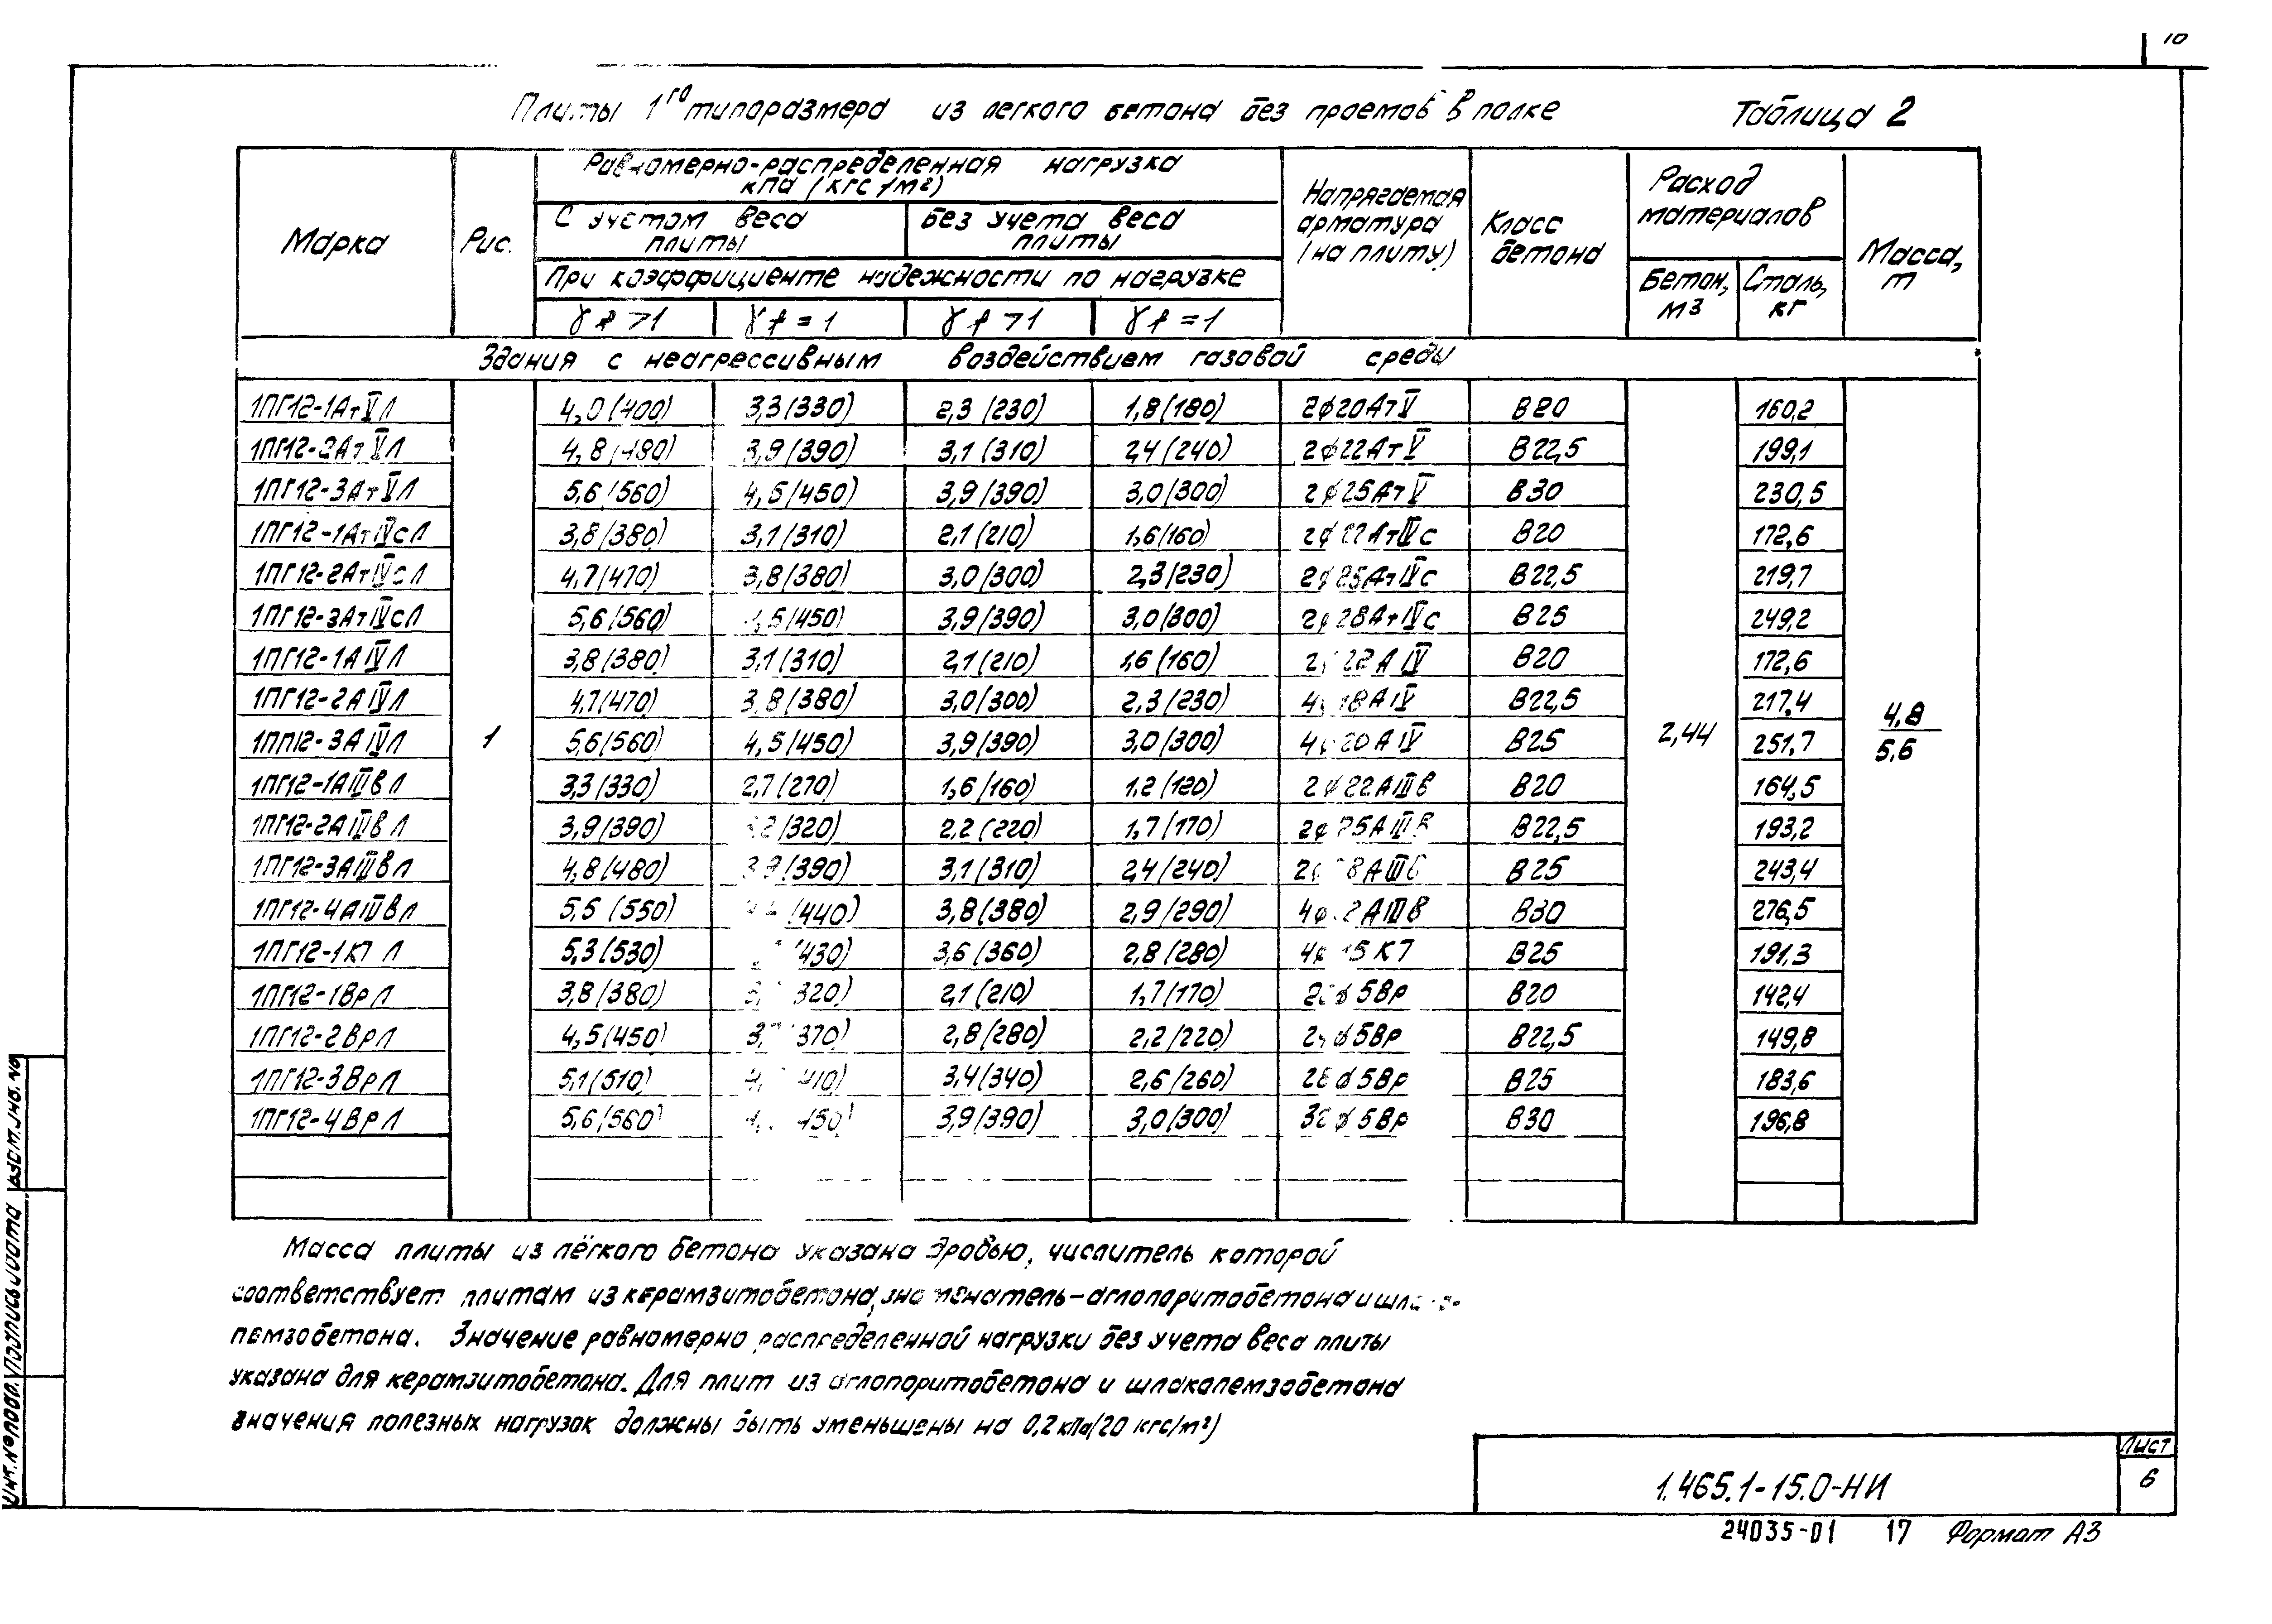 10
Плиты 1го типоразмера из легкого бетона без проемов в полке Таблица 2
Марка
Рис.
Равномерно-распределенная нагрузка
кПа (кгс/м²)
С учетом веса плиты
Без учета веса плиты
При коэффициенте надежности по нагрузке
γf >1 γf = 1 γf >1 γf = 1
Напрягаемая арматура (на плиту)
Класс бетона
Расход материалов
Бетон, м3
Сталь, кг
Масса, т
Здания с неагрессивным воздействием газовой среды
1ПГ12-1АтVЛ 4,0(400) 3,3(330) 2,3(230) 1,8(180) 2φ20АтV В20 160,2
1ПГ12-2АтVЛ 4,8(480) 3,9(390) 3,1(310) 2,4(240) 2φ22АтV В22,5 199,1
1ПГ12-3АтVЛ 5,6(560) 4,5(450) 3,9(390) 3,0(300) 2φ25АтV В30 230,5
1ПГ12-1АтIVсЛ 3,8(380) 3,1(310) 2,1(210) 1,6(160) 2φ22АтIVс В20 172,6
1ПГ12-2АтIVсЛ 4,7(470) 3,8(380) 3,0(300) 2,3(230) 2φ25АтIVс В22,5 219,7
1ПГ12-3АтIVсЛ 5,6(560) 4,5(450) 3,9(390) 3,0(300) 2φ28АтIVс В25 249,2
1ПГ12-1АIVЛ 3,8(380) 3,1(310) 2,1(210) 1,6(160) 2φ22АIV В20 172,6
1ПГ12-2АIVЛ 4,7(470) 3,8(380) 3,0(300) 2,3(230) 4φ18АIV В22,5 217,4
1ПГ12-3АIVЛ 5,6(560) 4,5(450) 3,9(390) 3,0(300) 4φ20АIV В25 251,7
1 2,44 4,8/5,6
1ПГ12-1АIIIвЛ 3,3(330) 2,7(270) 1,6(160) 1,2(120) 2φ22АIIIв В20 164,5
1ПГ12-2АIIIвЛ 3,9(390) 3,2(320) 2,2(220) 1,7(170) 2φ25АIIIв В22,5 193,2
1ПГ12-3АIIIвЛ 4,8(480) 3,9(390) 3,1(310) 2,4(240) 2φ28АIIIв В25 243,4
1ПГ12-4АIIIвЛ 5,5(550) (440) 3,8(380) 2,9(290) АIIIв В30 276,5
1ПГ12-1К7Л 5,3(530) (430) 3,6(360) 2,8(280) 4φ15К7 В25 191,3
1ПГ12-1ВрЛ 3,8(380) (320) 2,1(210) 1,7(170) φ5Вр В20 142,4
1ПГ12-2ВрЛ 4,5(450) (370) 2,8(280) 2,2(220) φ5Вр В22,5 149,8
1ПГ12-3ВрЛ 5,1(510) (410) 3,4(340) 2,6(260) 28φ5Вр В25 183,6
1ПГ12-4ВрЛ 5,6(560) (450) 3,9(390) 3,0(300) φ5Вр В30 196,8
Масса плиты из лёгкого бетона указана дробью, числитель которой
соответствует плитам из керамзитобетона, знаменатель-аглопоритобетона и шлако-
пемзобетона. Значение равномерно распределенной нагрузки без учета веса плиты
указана для керамзитобетона. Для плит из аглопоритобетона и шлакопемзобетона
значения полезных нагрузок должны быть уменьшены на 0,2 кПа(20 кгс/м²)
1.465.1-15.0-НИ
Лист
6
24035-01 17 Формат А3
Инв.№подл. Подпись и дата Взам.инв.№